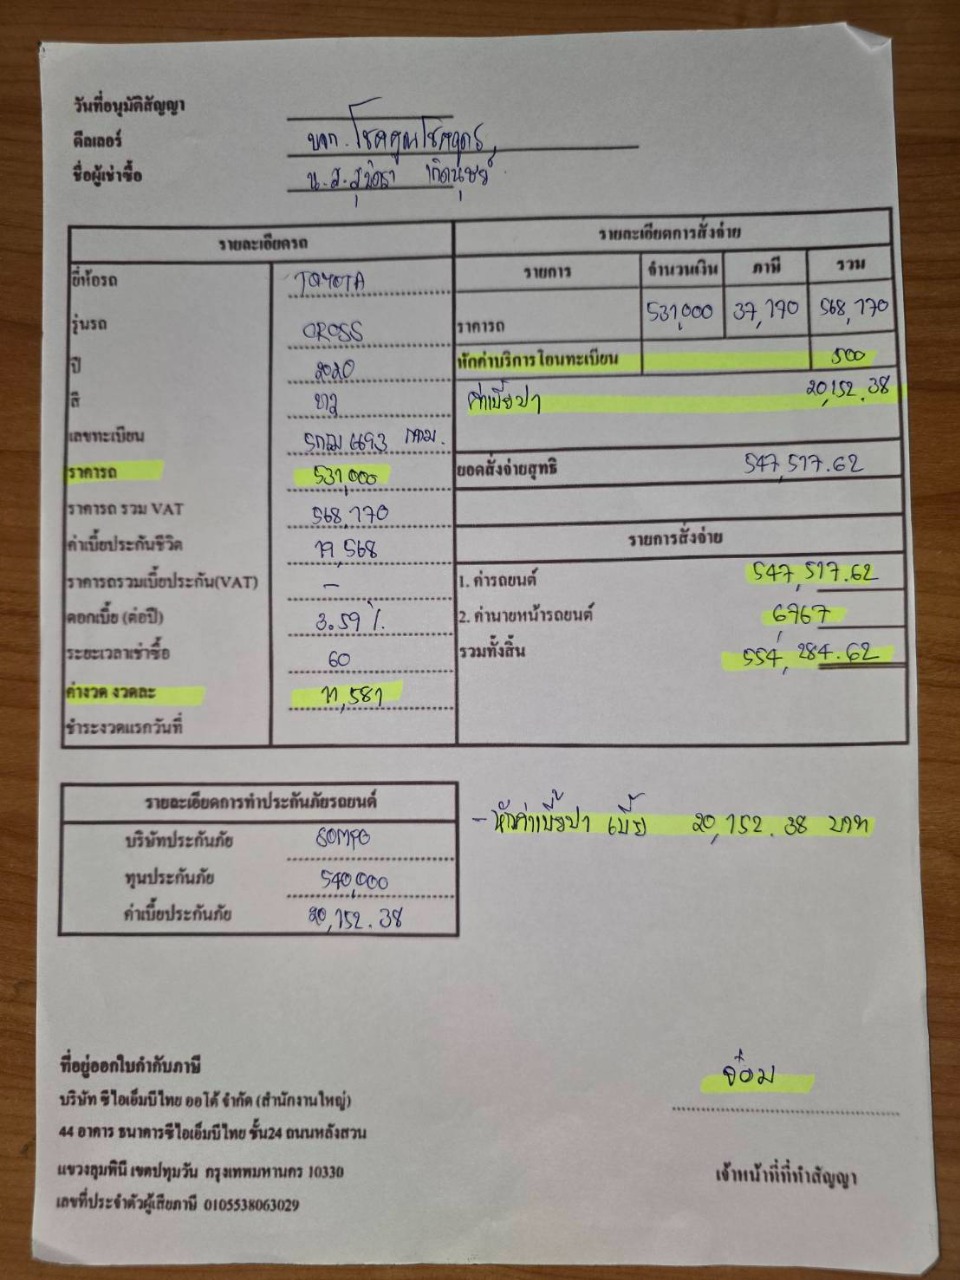 วันที่อนุมัติสัญญา
ดีลเลอร์ บจก. โชคคูณโชค
ชื่อผู้เช่าซื้อ น.ส.
รายละเอียดรถ
ยี่ห้อรถ TOYOTA
รุ่นรถ CROSS
ปี 2020
สี ขาว
เลขทะเบียน 5กฒ 1693 กทม.
ราคารถ 531,000
ราคารถ รวม VAT 568,170
ค่าเบี้ยประกันชีวิต 19,568
ราคารถรวมเบี้ยประกัน(VAT) -
ดอกเบี้ย (ต่อปี) 3.59 %
ระยะเวลาเช่าซื้อ 60
ค่างวด งวดละ 11,581
ชำระงวดแรกวันที่
รายละเอียดการสั่งจ่าย
รายการ จำนวนเงิน ภาษี รวม
ราคารถ 531,000 37,170 568,170
หักค่าบริการโอนทะเบียน 500
ค่าเบี้ยป1 20,152.38
ยอดสั่งจ่ายสุทธิ 547,517.62
รายการสั่งจ่าย
1. ค่ารถยนต์ 547,517.62
2. ค่านายหน้ารถยนต์ 6767
รวมทั้งสิ้น 554,284.62
รายละเอียดการทำประกันภัยรถยนต์
บริษัทประกันภัย SOMPO
ทุนประกันภัย 540,000
ค่าเบี้ยประกันภัย 20,152.38
- หักค่าเบี้ยป1 เบี้ย 20,152.38 บาท
ที่อยู่ออกใบกำกับภาษี
บริษัท ซีไอเอ็มบีไทย ออโต้ จำกัด (สำนักงานใหญ่)
44 อาคาร ธนาคารซีไอเอ็มบีไทย ชั้น24 ถนนหลังสวน
แขวงลุมพินี เขตปทุมวัน กรุงเทพมหานคร 10330
เลขที่ประจำตัวผู้เสียภาษี 0105538063029
จ๋อม
เจ้าหน้าที่ที่ทำสัญญา